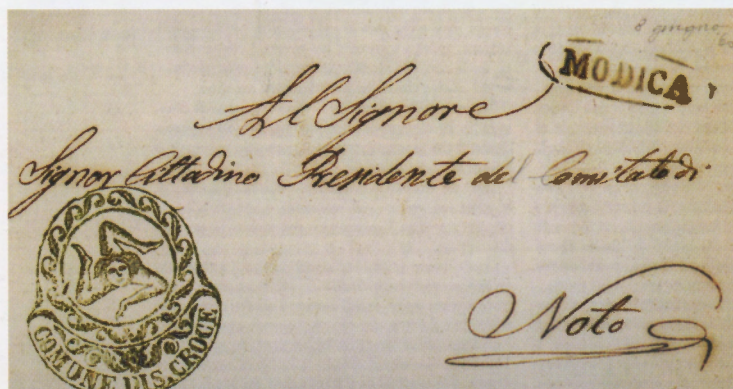 8 giugno
MODICA
Al Signore
Signor Cittadino Presidente del Comitato di
Noto
COMUNE DI S. CROCE